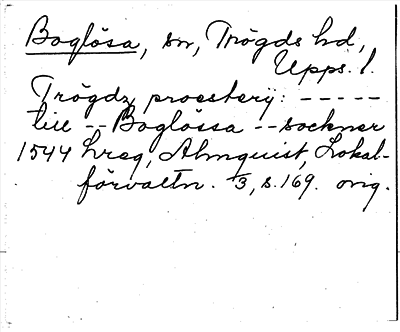 Boglösa, sn, Trögds hd,
Upps. l.
Trögdz proesterij: -----
till -- Boglössa -- sockner
1544 hreg, Almquist, Lokal-
förvaltn. 1/3, s. 169. orig.